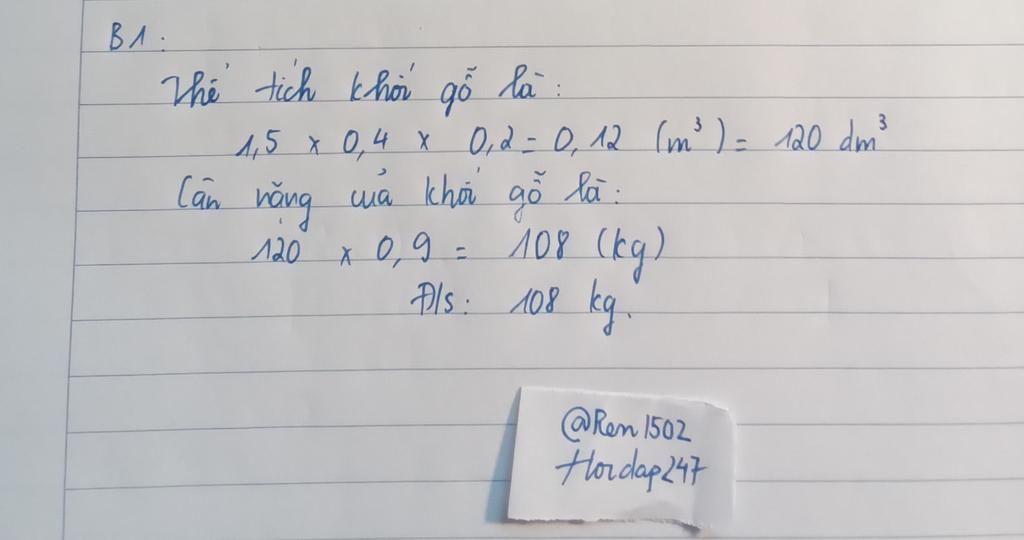 B1:
Thể tích khối gỗ là:
1,5 x 0,4 x 0,2 = 0,12 (m³) = 120 dm³
Cân nặng của khối gỗ là:
120 x 0,9 = 108 (kg)
Đ/s: 108 kg.
@Ren1502
Hoidap247